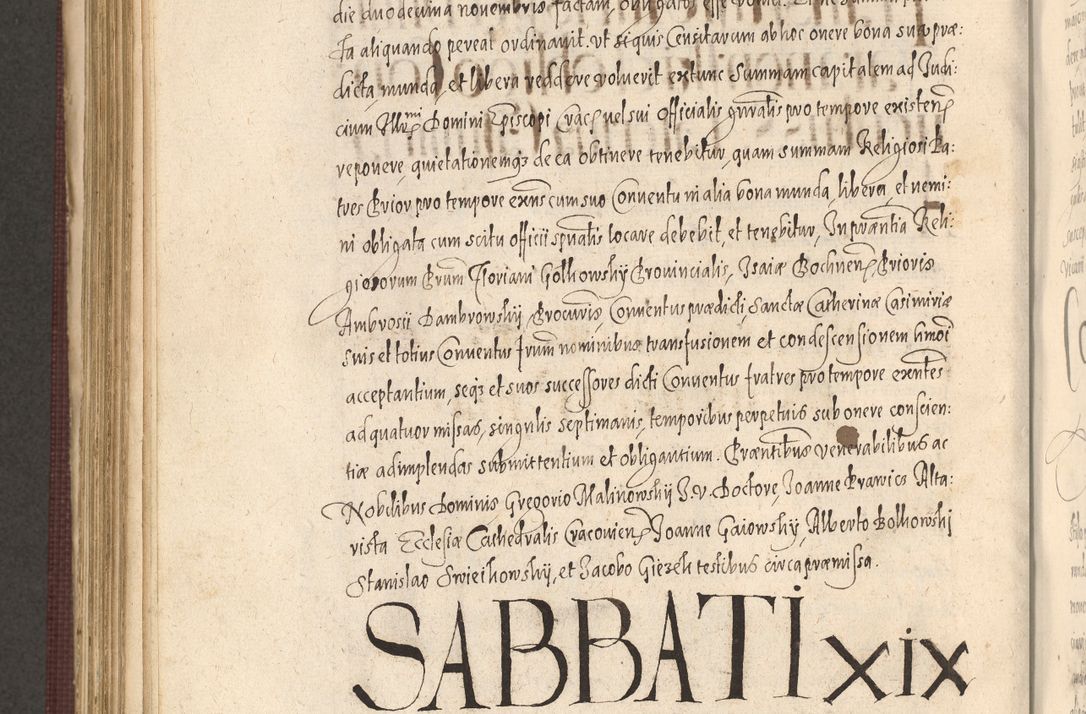 die duodecima novembris factam, obligatos esse
ta aliquando pereat ordinavit. ut si quis Censitarum ab hoc onere bona sua præ:
dicta, munda, et libera reddere voluerit extunc Summam capitalem ad Judi:
cium Illrmi Domini Episcopi Cracn vel sui Officialis gnralis pro tempore existenn
reponere, quietationemqz de ea obtinere tenebitur, quam summam Religiosi Pa:
tres Prior pro tempore exns cum suo Conventu in alia bona munda, libera, et nemi:
ni obligata cum scitu officii spualis locare debebit, et tenebitur, In præntia Reli:
giosorum Frum Floriani Golkowskÿ Provincialis, Isaiæ Bochnenn Prioris
Ambrosii Dambrowskÿ, Procuris, Conventus prædicti, Sanctæ Catherinæ Casimiriæ
suis et totius Conventus frum nominibus transfusionem et condescensionem hmoi
acceptantium, seqz et suos successores dicti Conventus fratres pro tempore exntes
ad quatuor missas, singulis septimanis, temporibus perpetuis sub onere conscien:
tiæ adimplendas submittentium et obligantium. Præntibus venerabilibus ac
Nobilibus Dominis Gregorio Malinowskÿ I.V. Doctore, Joanne Prawicz Alta:
rista Ecclesiæ Cathedralis Cracovienn Joanne Gaiowskÿ, Alberto Bolkowski
Stanislao Swieikowskÿ, et Jacobo Giezek testibus circa præmissa.
SABBATI XIX